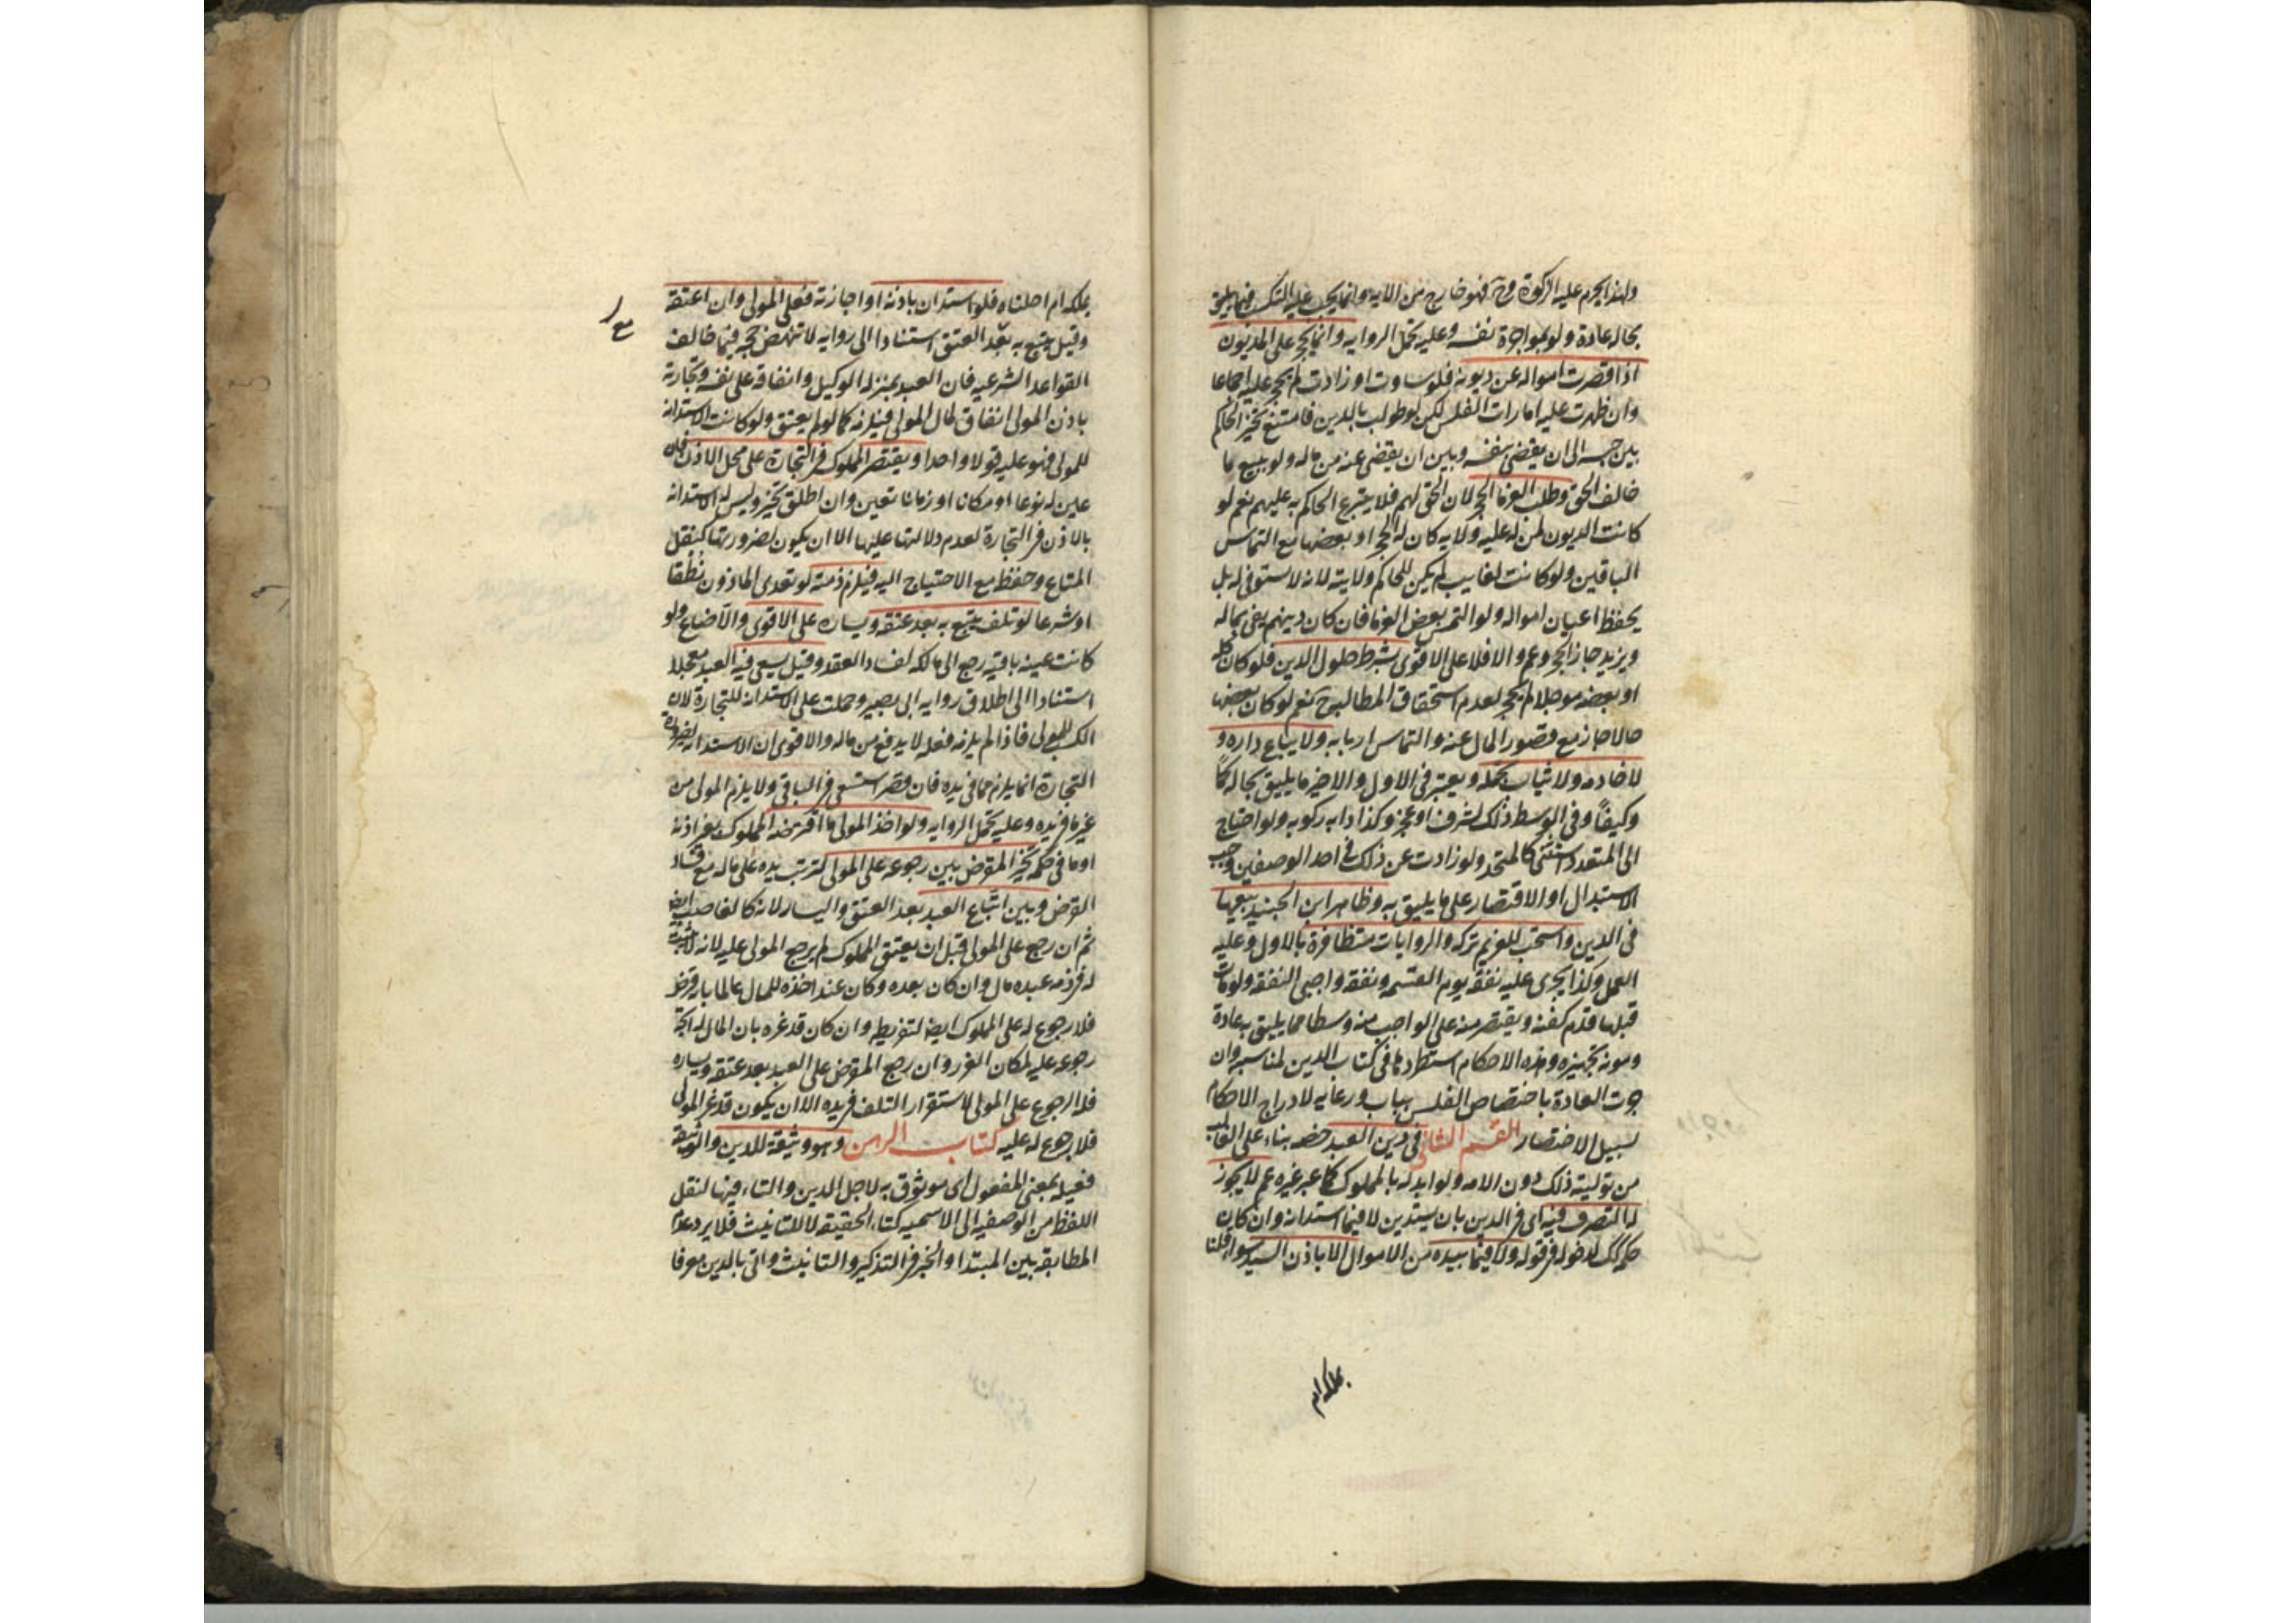 ولهذا يحرم عليه الزكوة وح فهو خارج من الايه وانما يجب عليه التكسب فيما يليق
بحاله عادة ولو بمواجرة نفسه وعليه تحمل الروايه وانما يحجر على المديون
اذا قصرت امواله عن ديونه فلو ساوت او زادت لم يحجر عليه اجماعا
وان ظهرت عليه امارات الفلس لكن لو طولب بالدين فامتنع تخير الحاكم
بين حبسه الى ان يقضى بنفسه وبين ان يقضى عنه من ماله ولو ببيع ما
خالف الحق وطلب الغرما الحجر لان الحق لهم فلا يتبرع الحاكم به عليهم نعم لو
كانت الديون لمن له عليه ولايه كان له الحجر او بعضها مع التماس
الباقين ولو كانت لغايب لم يكن للحاكم ولايته لانه لا يستوفى له بل
يحفظ اعيان امواله ولو التمس بعض الغرما فان كان دينهم يفى بماله
ويزيد جاز الحجر وعم والا فلا على الاقوى بشرط حلول الدين فلو كان كله
او بعضه موجلا لم يحجر لعدم استحقاق المطالبه ح نعم لو كان بعضها
حالا جاز مع قصور المال عنه والتماس اربابه ولا يباع داره و
لا خادمه ولا ثياب تجمله ويعتبر فى الاول والاخير ما يليق بحاله كما
وكيفا وفى الوسط ذلك لشرف او عجز وكذا دابه ركوبه ولو احتاج
الى المتعدد استثنى كالمتحد ولو زادت عن ذلك فى احد الوصفين وجب
الاستبدال او الاقتصار على ما يليق به وظاهر ابن الجنيد بيعها
فى الدين واستحب للغريم تركه والروايات متظافرة بالاول وعليه
العمل وكذا يجرى عليه نفقه يوم القسمه ونفقه واجبى النفقه ولو مات
قبلها قدم كفنه ويقتصر منه على الواجب منه وسطا مما يليق به عادة
ومونه تجهيزه وهذه الاحكام استطردها فى كتاب الدين لمناسبه وان
جرت العادة باختصاص الفلس بباب ورعايه لادراج الاحكام
لسبيل الاختصار القسم الثانى فى دين العبد خصه بناء على الغالب
من توليته ذلك دون الامه ولو ابدله بالمملوك كما عبر غيره عم لا يجوز
له التصرف فيه اى فى الدين بان يستدين لا فيما استدانه وان كان
حكمه كك لدخوله فى قوله ولا فيما بيده من الاموال الا باذن السيد سوا قلنا
بملكه ام
بملكه ام احلناه فلو استدان باذنه او اجازته فعلى المولى وان اعتقه
وقيل يتبع به بعد العتق استنادا الى روايه لا تنهض حجه فيما خالف
القواعد الشرعيه فان العبد بمنزله الوكيل وانفاقه على نفسه وتجارته
باذن المولى انفاق لمال المولى فيلزمه كما لو لم يعتق ولو كانت الاستدانه
للمولى فهو عليه قولا واحدا ويقتصر المملوك فى التجارة على محل الاذن فان
عين له نوعا او مكانا او زمانا تعين وان اطلق تخير وليس له الاستدانه
بالاذن فى التجارة لعدم دلالتها عليها الا ان يكون لضرورتها كنقل
المتاع وحفظه مع الاحتياج اليه فيلزم ذمته لو تعدى الماذون نطقا
او شرعا لو تلف يتبع به بعد عتقه ويساره على الاقوى والا ضاع ولو
كانت عينه باقيه رجع الى مالكه لفساد العقد وقيل يسعى فيه العبد معجلا
استنادا الى اطلاق روايه ابى بصير وحملت على الاستدانه للتجارة لان
الكسب للمولى فاذا لم يلزمه فعله لا يدفع من ماله والاقوى ان الاستدانه لضرورة
التجارة انما يلزم مما فى يده فان قصر استسعى فى الباقى ولا يلزم المولى من
غير ما فى يده وعليه تحمل الروايه ولو اخذ المولى ما اقترضه المملوك بغير اذنه
او ما فى حكمه تخير المقرض بين رجوعه على المولى لترتب يده على ماله مع فساد
القرض وبين اتباع العبد بعد العتق واليسار لانه كالغاصب ايضا
ثم ان رجع على المولى قبل ان يعتق المملوك لم يرجع المولى عليه لانه لا يثبت
له فى ذمه عبده مال وان كان بعده وكان عند اخذه للمال عالما بانه قرض
فلا رجوع له على المملوك ايضا لتفريطه وان كان قد غره بان المال له اتجه
رجوعه عليه لمكان الغرور وان رجع المقرض على العبد بعد عتقه ويساره
فله الرجوع على المولى لاستقرار التلف فى يده الا ان يكون قد غر المولى
فلا رجوع له عليه كتاب الرهن وهو وثيقة للدين والوثيقه
فعيله بمعنى المفعول اى موثوق به لاجل الدين والتاء فيها لنقل
اللفظ من الوصفيه الى الاسميه كتاء الحقيقه لا للتانيث فلا يرد عدم
المطابقه بين المبتدا والخبر فى التذكير والتانيث واتى بالدين معرفا